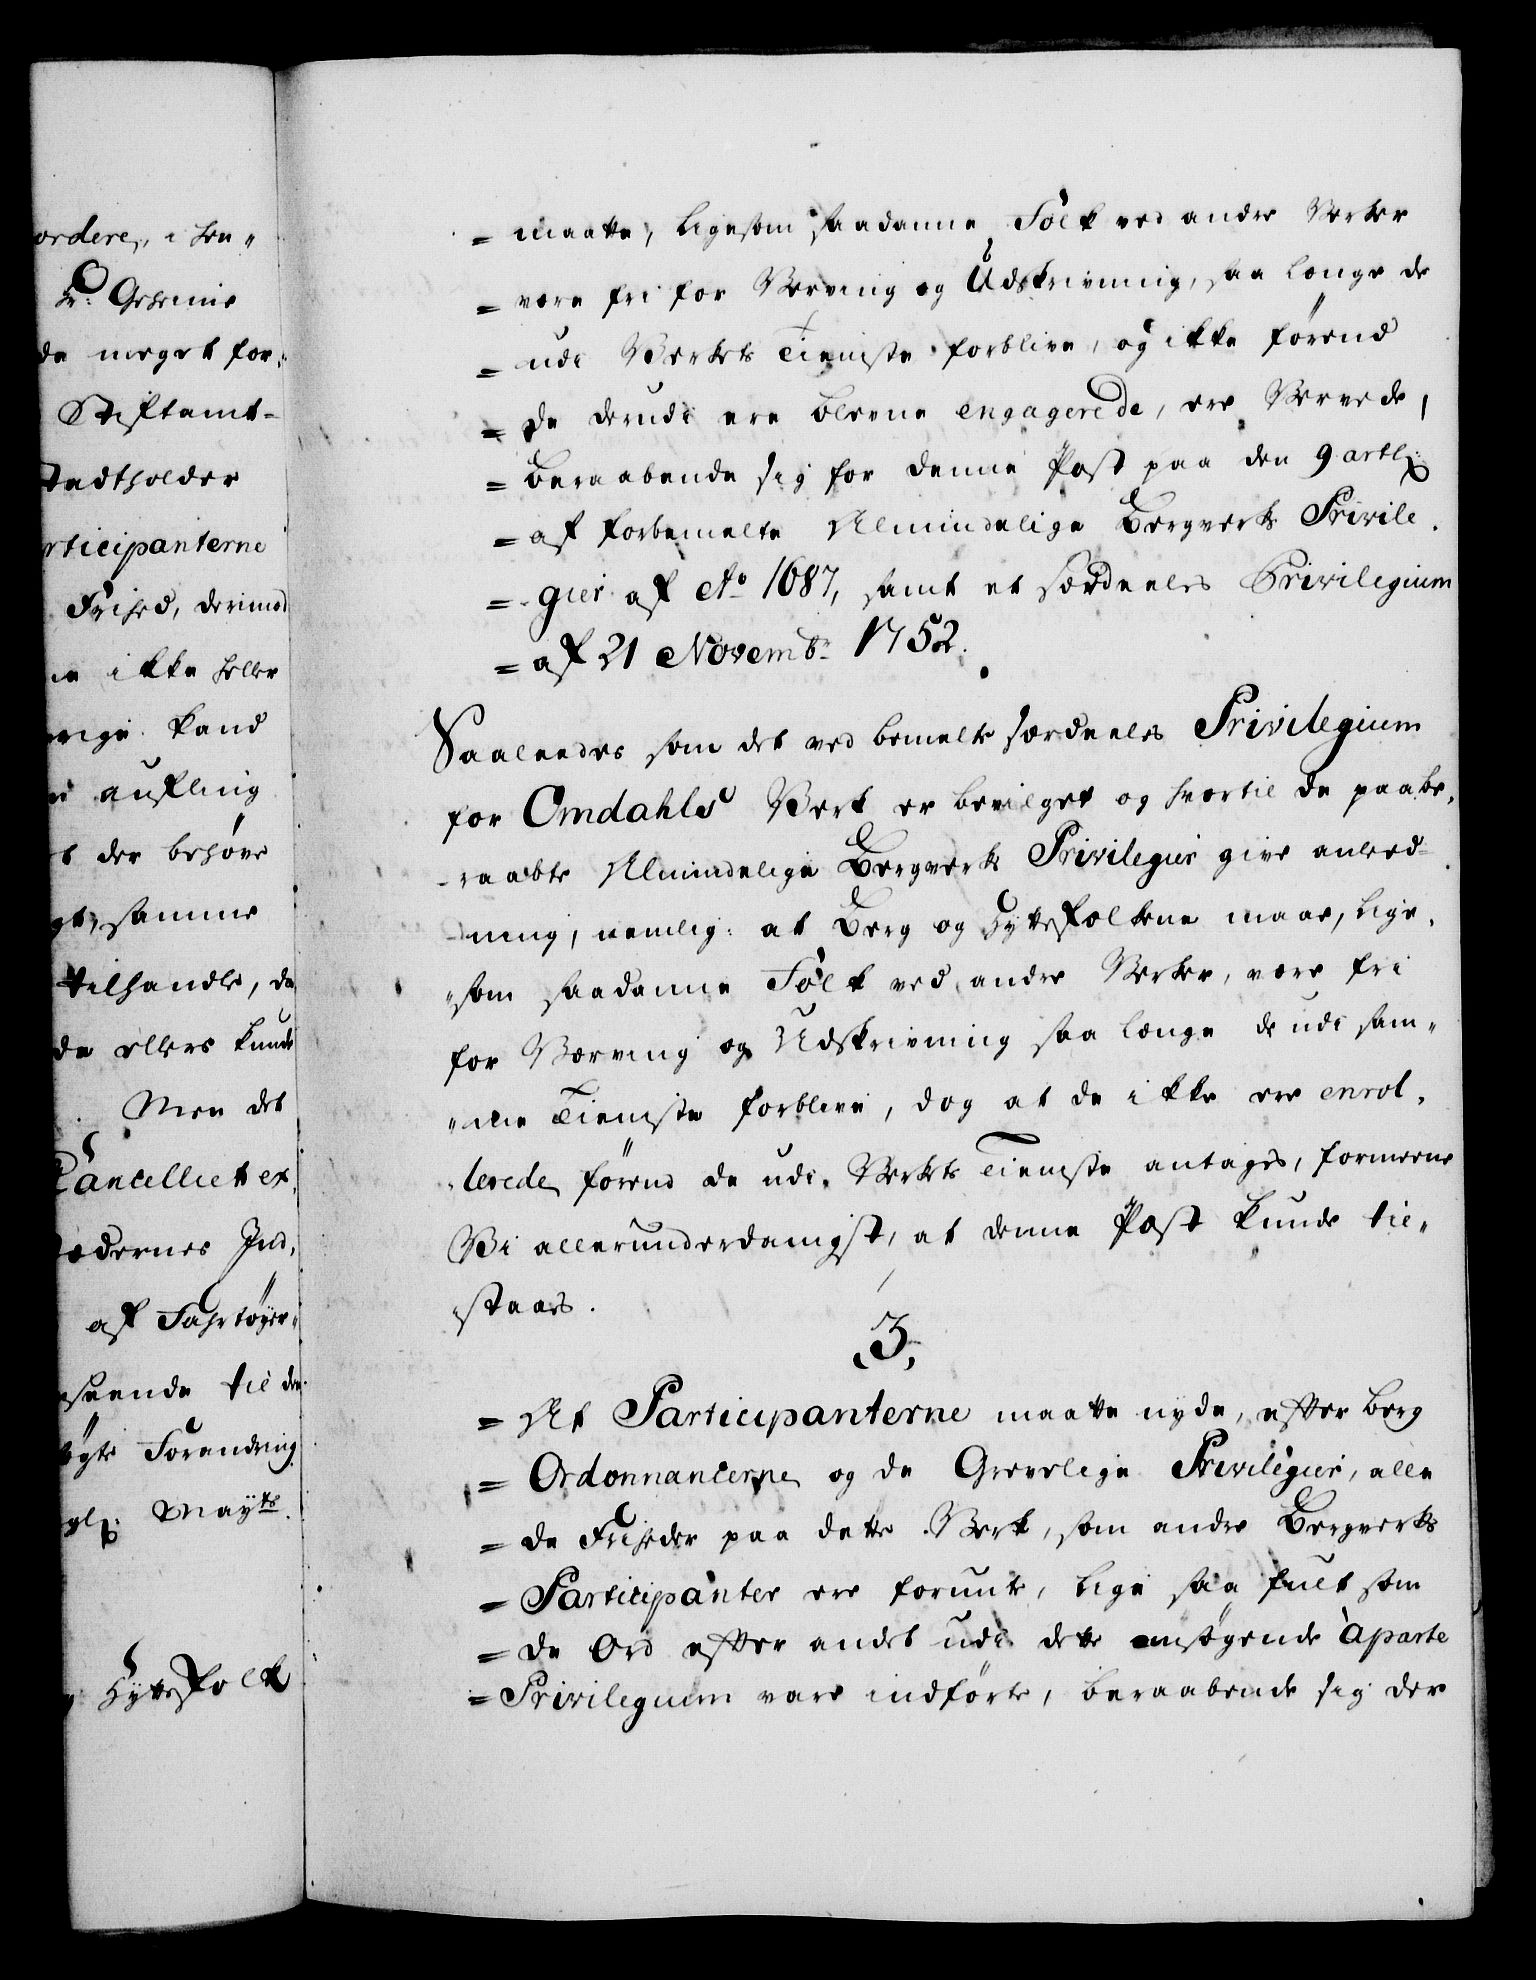 ordere, i Hen„
Hr: Geheime
de meget for„
Stiftamt-
Stadtholder
rticipanterne
Frihed, derimod
ikke heller
kand
aufling
der behøve
samme
tilhandle, da
de ellers kunde
Men det
Cancelliet ex„
Jnd„
af Fahrtøyer„
seende til den
Forandring
Mayts.
Hyttefolk
= maatte, ligesom saadanne Folk ved andre Verker
= være fri for Verving og Udskrivning, saa længe de
= udi Verkets Tieniste forblive, og ikke førend
= de derudi ere blevne engagerede, ere Vervede,
= beraabende sig for denne Post paa den 9 art:
= af forbemelte Almindelige Bergverks Privile-
= -gier af Ao 1687, samt et særdeeles Privilegium
= af 21 Novembr: 1752.
Saaleedes som det ved bemelte særdeeles Privilegium
for Omdahls Verk er bevilget og hvortil de paabe„
-raabte Almindelige Bergverks Privilegier give anleed-
-ning, nemlig: at Berg og Hyttefolkene maae, lige„
„som saadanne Folk ved andre Verker, være fri
for Værving og Udskrivning saa længe de udi sam„
„me Tieniste forblive, dog at de ikke ere enrol„
„lerede førend de udi Verkets Tieniste antages, formeene
Vi allerunderdanigst, at denne Post kunde til„
„staaes.
3,
= At Participanterne maatte nyde, efter Berg
= Ordonnancerne og de Grevelige Privilegier, alle
= de Friheder paa dette Verk, som andre Bergverks
= Participanter ere forunte, lige saa fult som
= de Ord efter andet udi dette ansøgende àparte
= Privilegium vare indførte, beraabende sig der